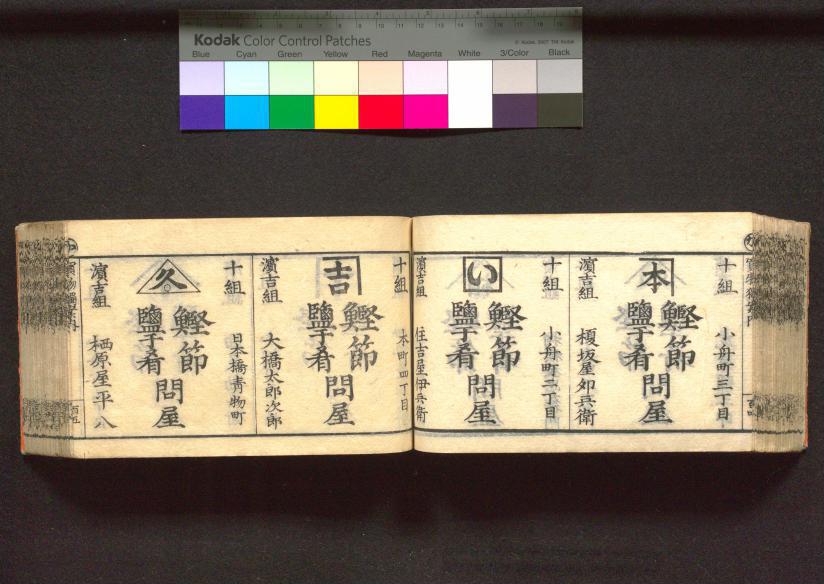 Kodak Color Control Patches
© Kodak, 2007 TM: Kodak
Blue Cyan Green Yellow Red Magenta White 3/Color Black
十組
小舟町三丁目
本
鰹節
鹽干肴
問屋
濵吉組
榎坂屋卯兵衛
十組
小舟町二丁目
い
鰹節
鹽干肴
問屋
濵吉組
住吉屋伊兵衛
十組
本町四丁目
吉
鰹節
鹽干肴
問屋
濵吉組
大橋太郎次郎
十組
日本橋青物町
久
鰹節
鹽干肴
問屋
濵吉組
栖原屋平八